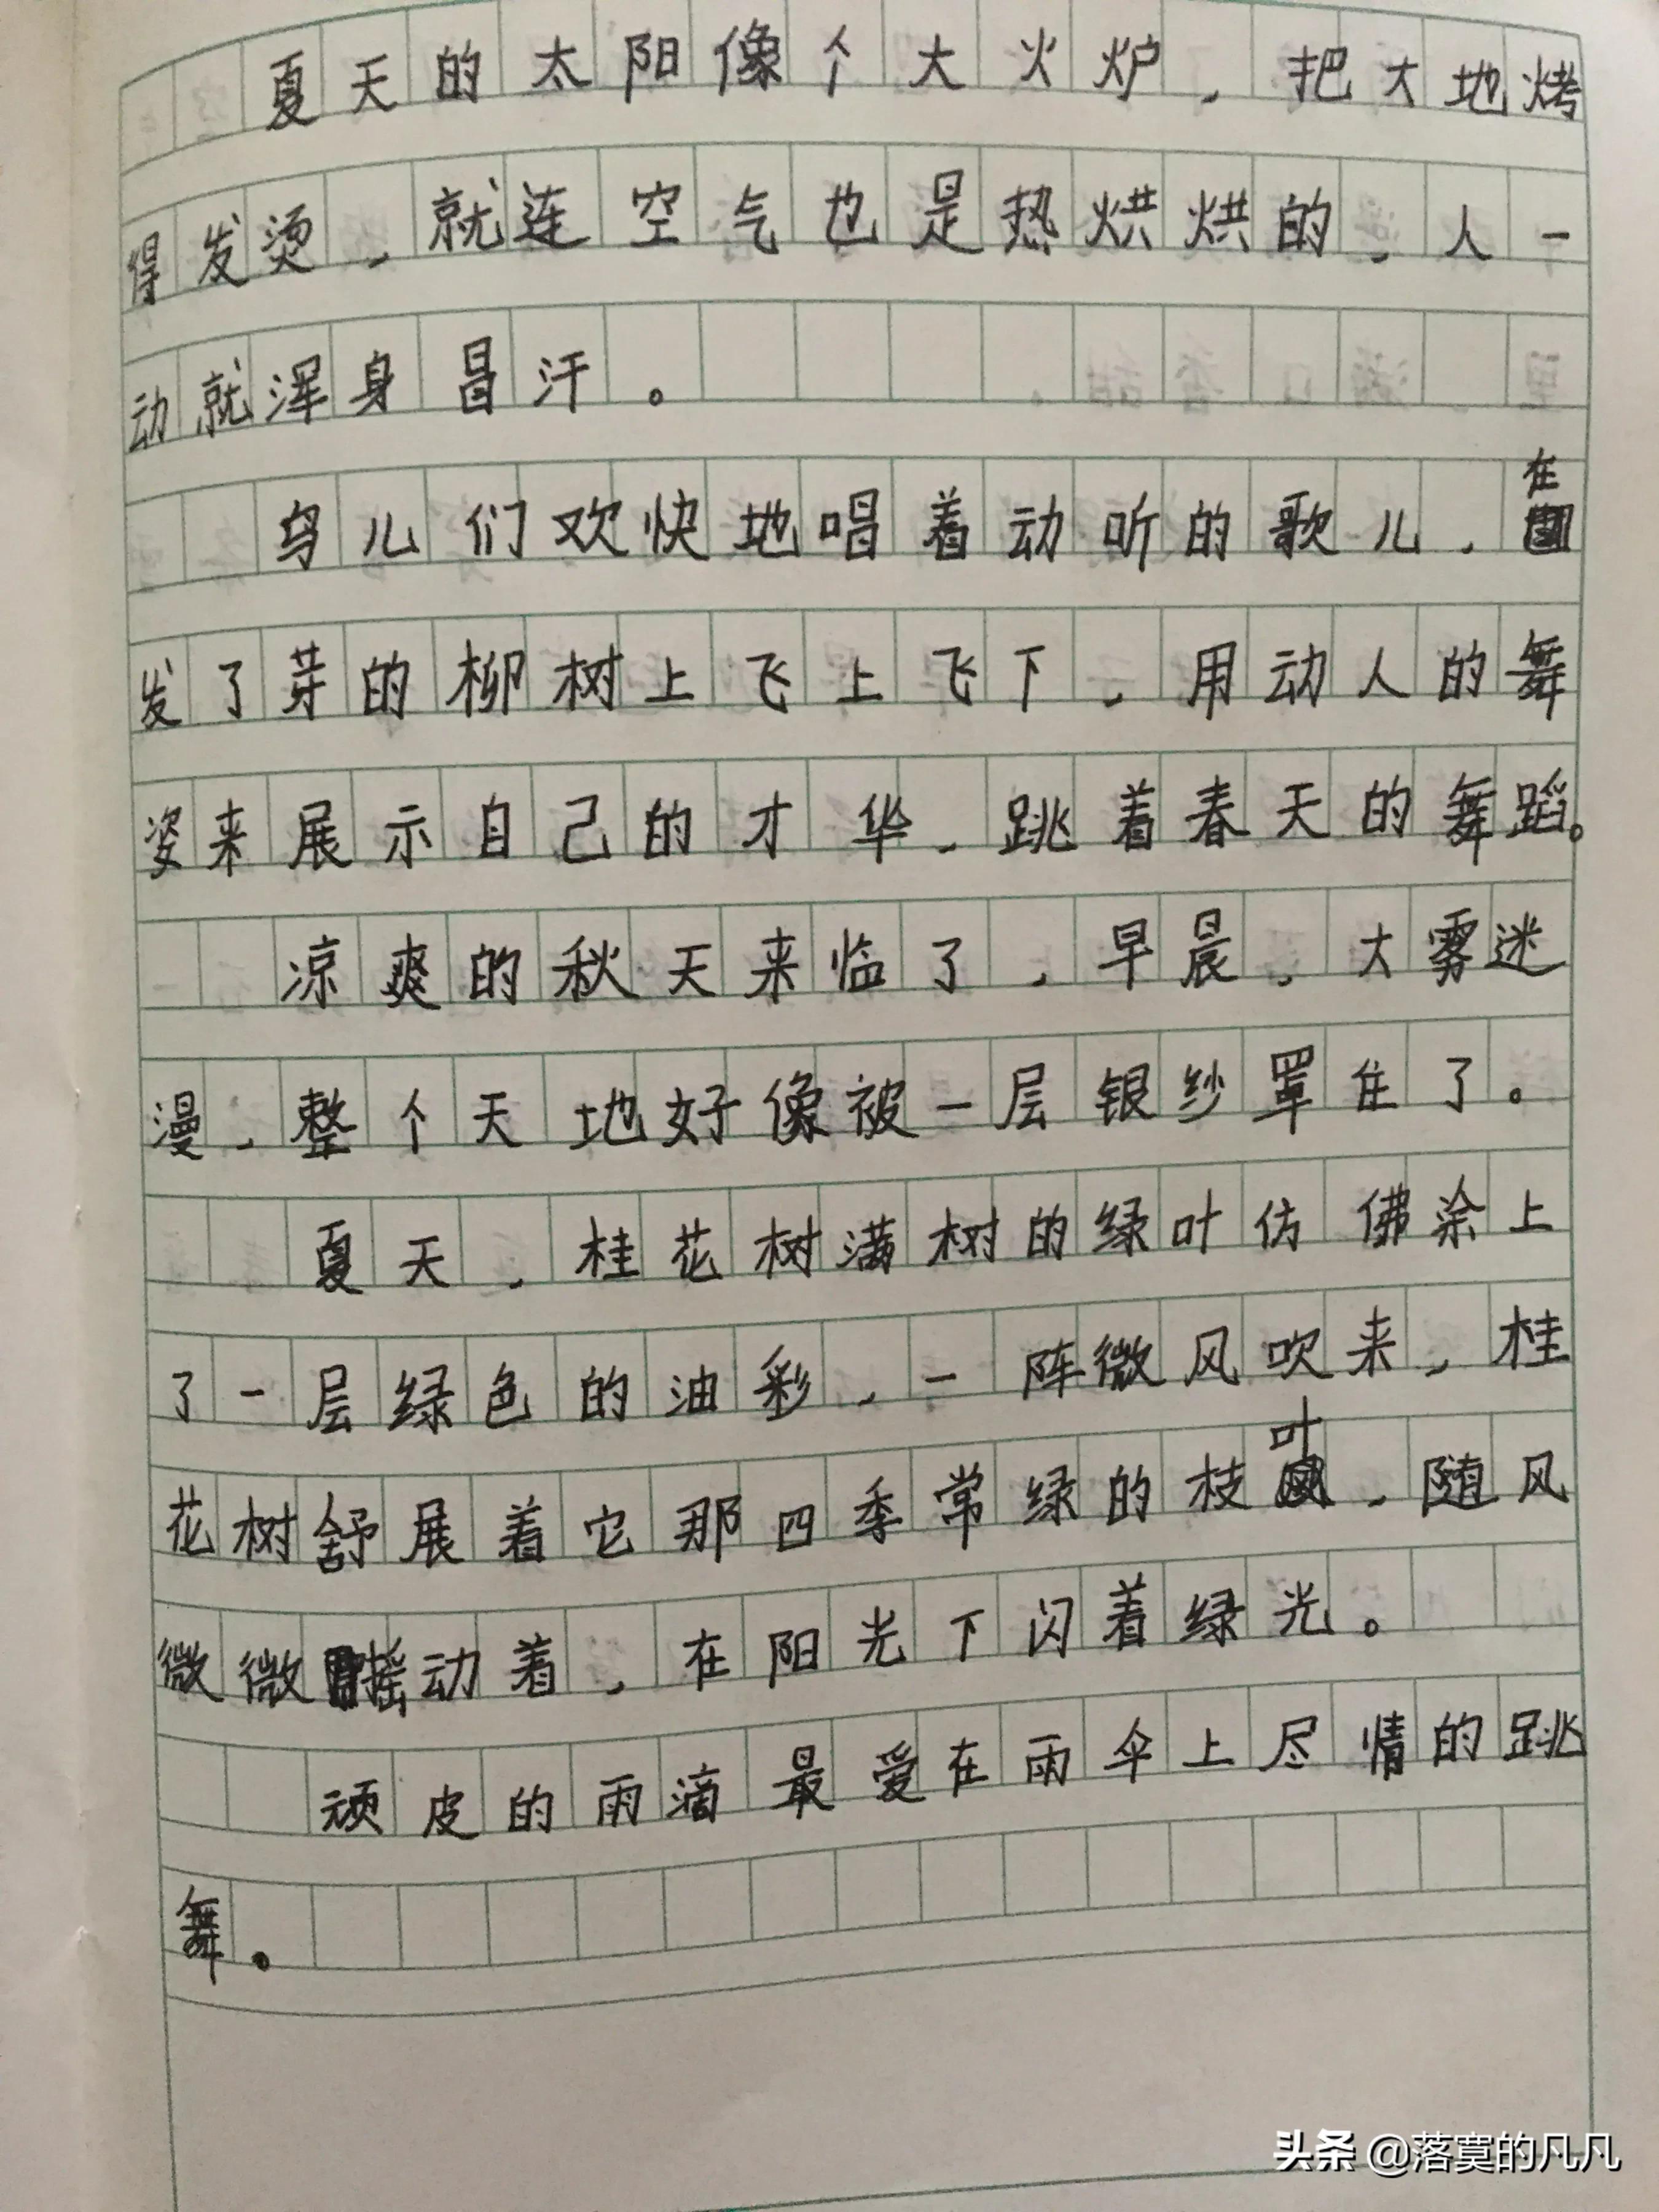 夏天的太阳像个大火炉，把大地烤
得发烫，就连空气也是热烘烘的，人一
动就浑身冒汗。
鸟儿们欢快地唱着动听的歌儿，在
发了芽的柳树上飞上飞下，用动人的舞
姿来展示自己的才华，跳着春天的舞蹈。
凉爽的秋天来临了，早晨，大雾迷
漫，整个天地好像被一层银纱罩住了。
夏天，桂花树满树的绿叶仿佛涂上
了一层绿色的油彩，一阵微风吹来，桂
花树舒展着它那四季常绿的枝叶，随风
微微摇动着，在阳光下闪着绿光。
顽皮的雨滴最爱在雨伞上尽情的跳
舞。
头条 @落寞的凡凡